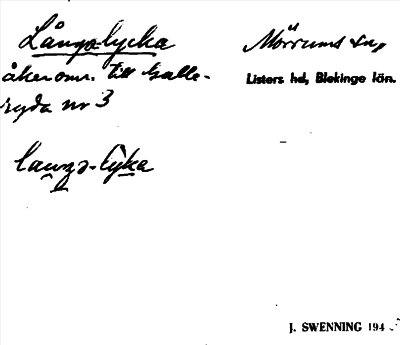 Långalycka
åkeromr. till Galle-
ryda nr 3
Mörrums sn,
Listers hd, Blekinge län.
J. SWENNING 194